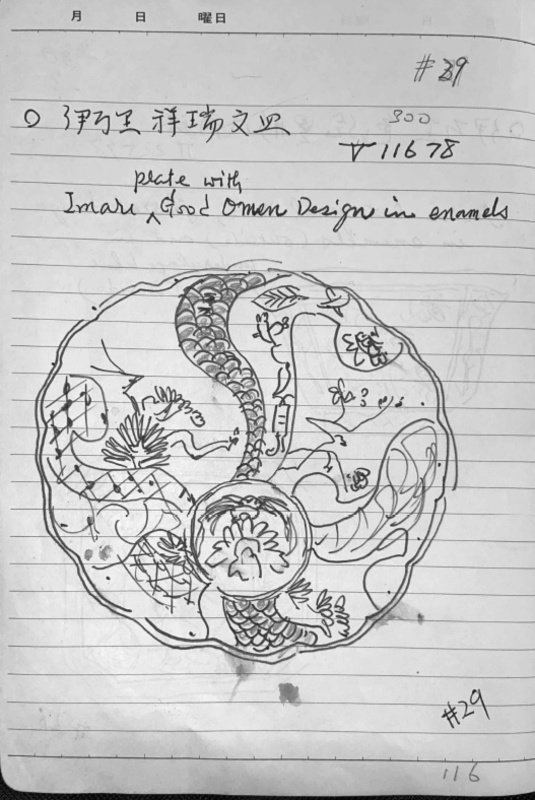 月 日 曜日
#39
○ 伊万里 祥瑞文皿
300
▽11678
plate with
Imari ^ Good Omen Designs in enamels
#29
116